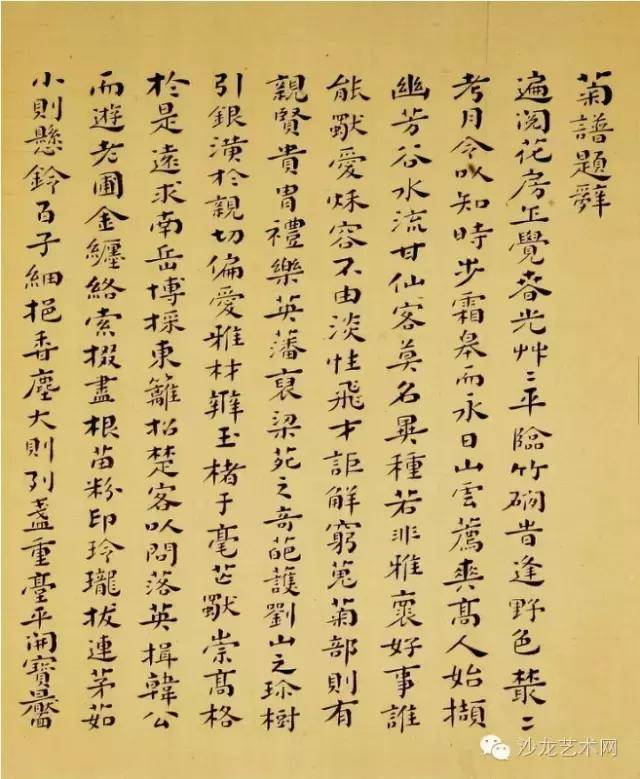 菊譜題辭
遍閱花房正覺春光艸〻平臨竹磵昔逢野色叢〻
考月令以知時步霜皋而永日山雲薦爽高人始擷
幽芳谷水流甘仙客莫名異種若非雅褱好事誰
能獸愛秌容不由淡性飛才詎解窮蒐菊部則有
親賢貴胄禮樂英藩裒梁苑之奇葩護劉山之珎樹
引銀潢於親切偏愛雅材辨玉楮于毫芒獸崇高格
於是遠求南岳博採東籬招楚客以問落英揖韓公
而遊老圃金纏絡索掇盡根苗粉印玲瓏拔連茅茹
小則懸鈴百子細挹香塵大則列盞重臺平開寶
沙龙艺术网